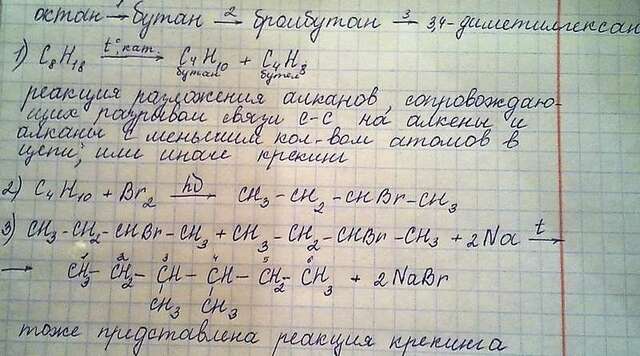 октан → бутан →² бромбутан →³ 3,4-диметилгексан
1) C₈H₁₈ —t°, кат→ C₄H₁₀ + C₄H₈
бутан бутен
реакция разложения алканов сопровождаю-
щая разрывом связи C-C на алкены и
алканы с меньшим кол-вом атомов в
цепи, или иначе крекинг
2) C₄H₁₀ + Br₂ —hν→ CH₃-CH₂-CHBr-CH₃
3) CH₃-CH₂-CHBr-CH₃ + CH₃-CH₂-CHBr-CH₃ + 2Na —t→
→ CH₃-CH₂-CH-CH-CH₂-CH₃ + 2NaBr
CH₃ CH₃
тоже представлена реакция крекинга